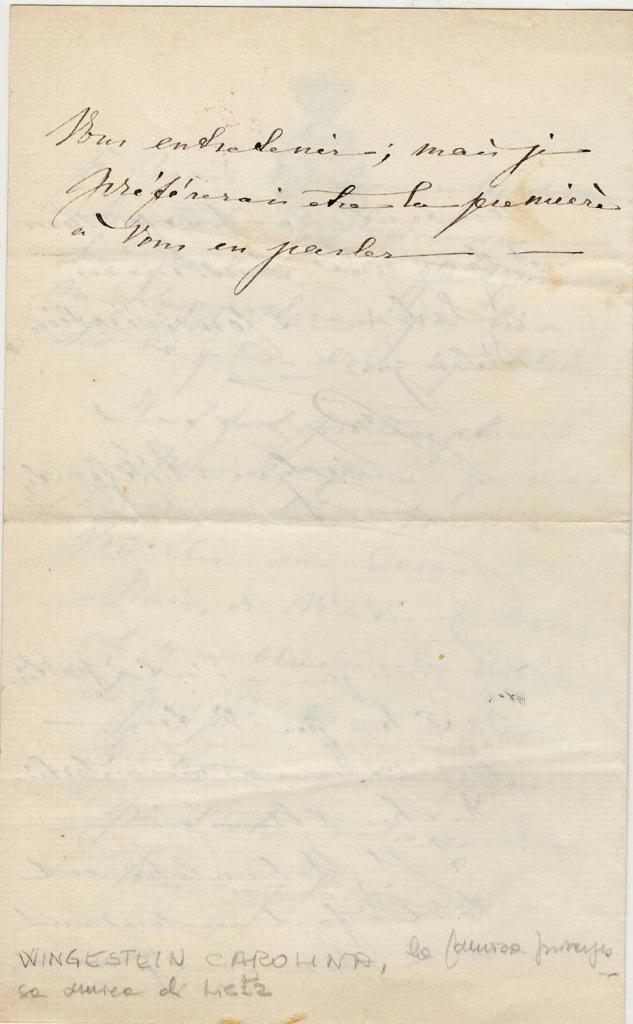 Vous entretenir; mais je
préférerais être la première
à Vous en parler
WINGESTEIN CAROLINA, la famosa principes
sa amica di Listz